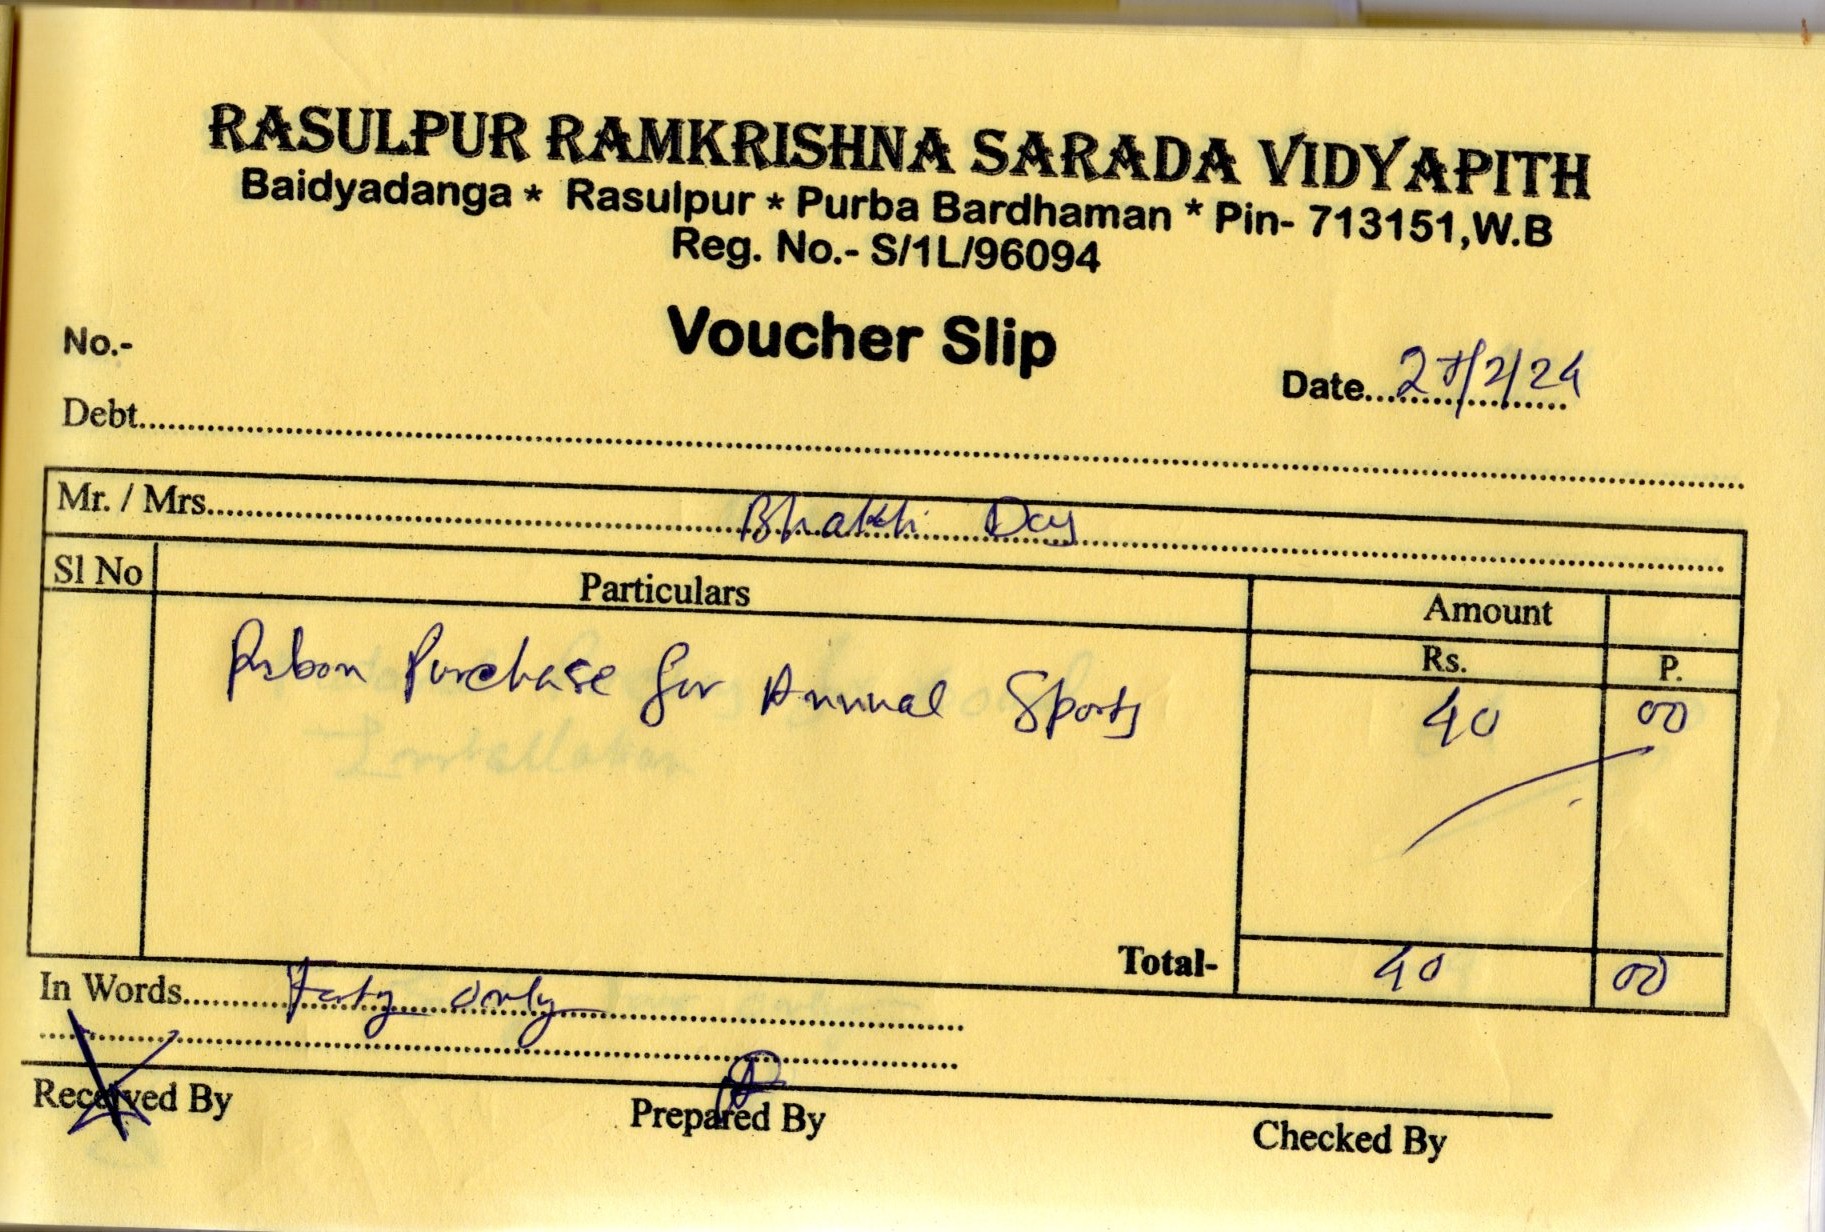 RASULPUR RAMKRISHNA SARADA VIDYAPITH
Baidyadanga * Rasulpur * Purba Bardhaman * Pin- 713151,W.B
Reg. No.- S/1L/96094
Voucher Slip
No.-
Date... 2/24
Debt
Mr. / Mrs. Bhakti Day
Sl No Particulars Amount
Rs. P.
Ribon Purchase for Annual Sports 40 00
Total- 40 00
In Words Forty only
Received By Prepared By Checked By